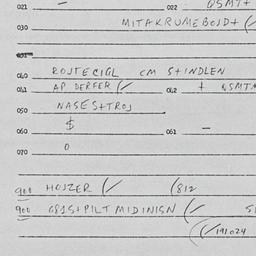 021 — 022 QSMT+
030 MITAKRUMEBOJD+ (/
040 ROJTECIGL CM S+INDLEN
041 AP DERFER (/ 042 + QSMTA
050 NASES+TROJ
060 $ 061 —
070 0
900 HOJZER (/ (812
900 G81S+PILT MIDINISN (/ SI
(/ 191024